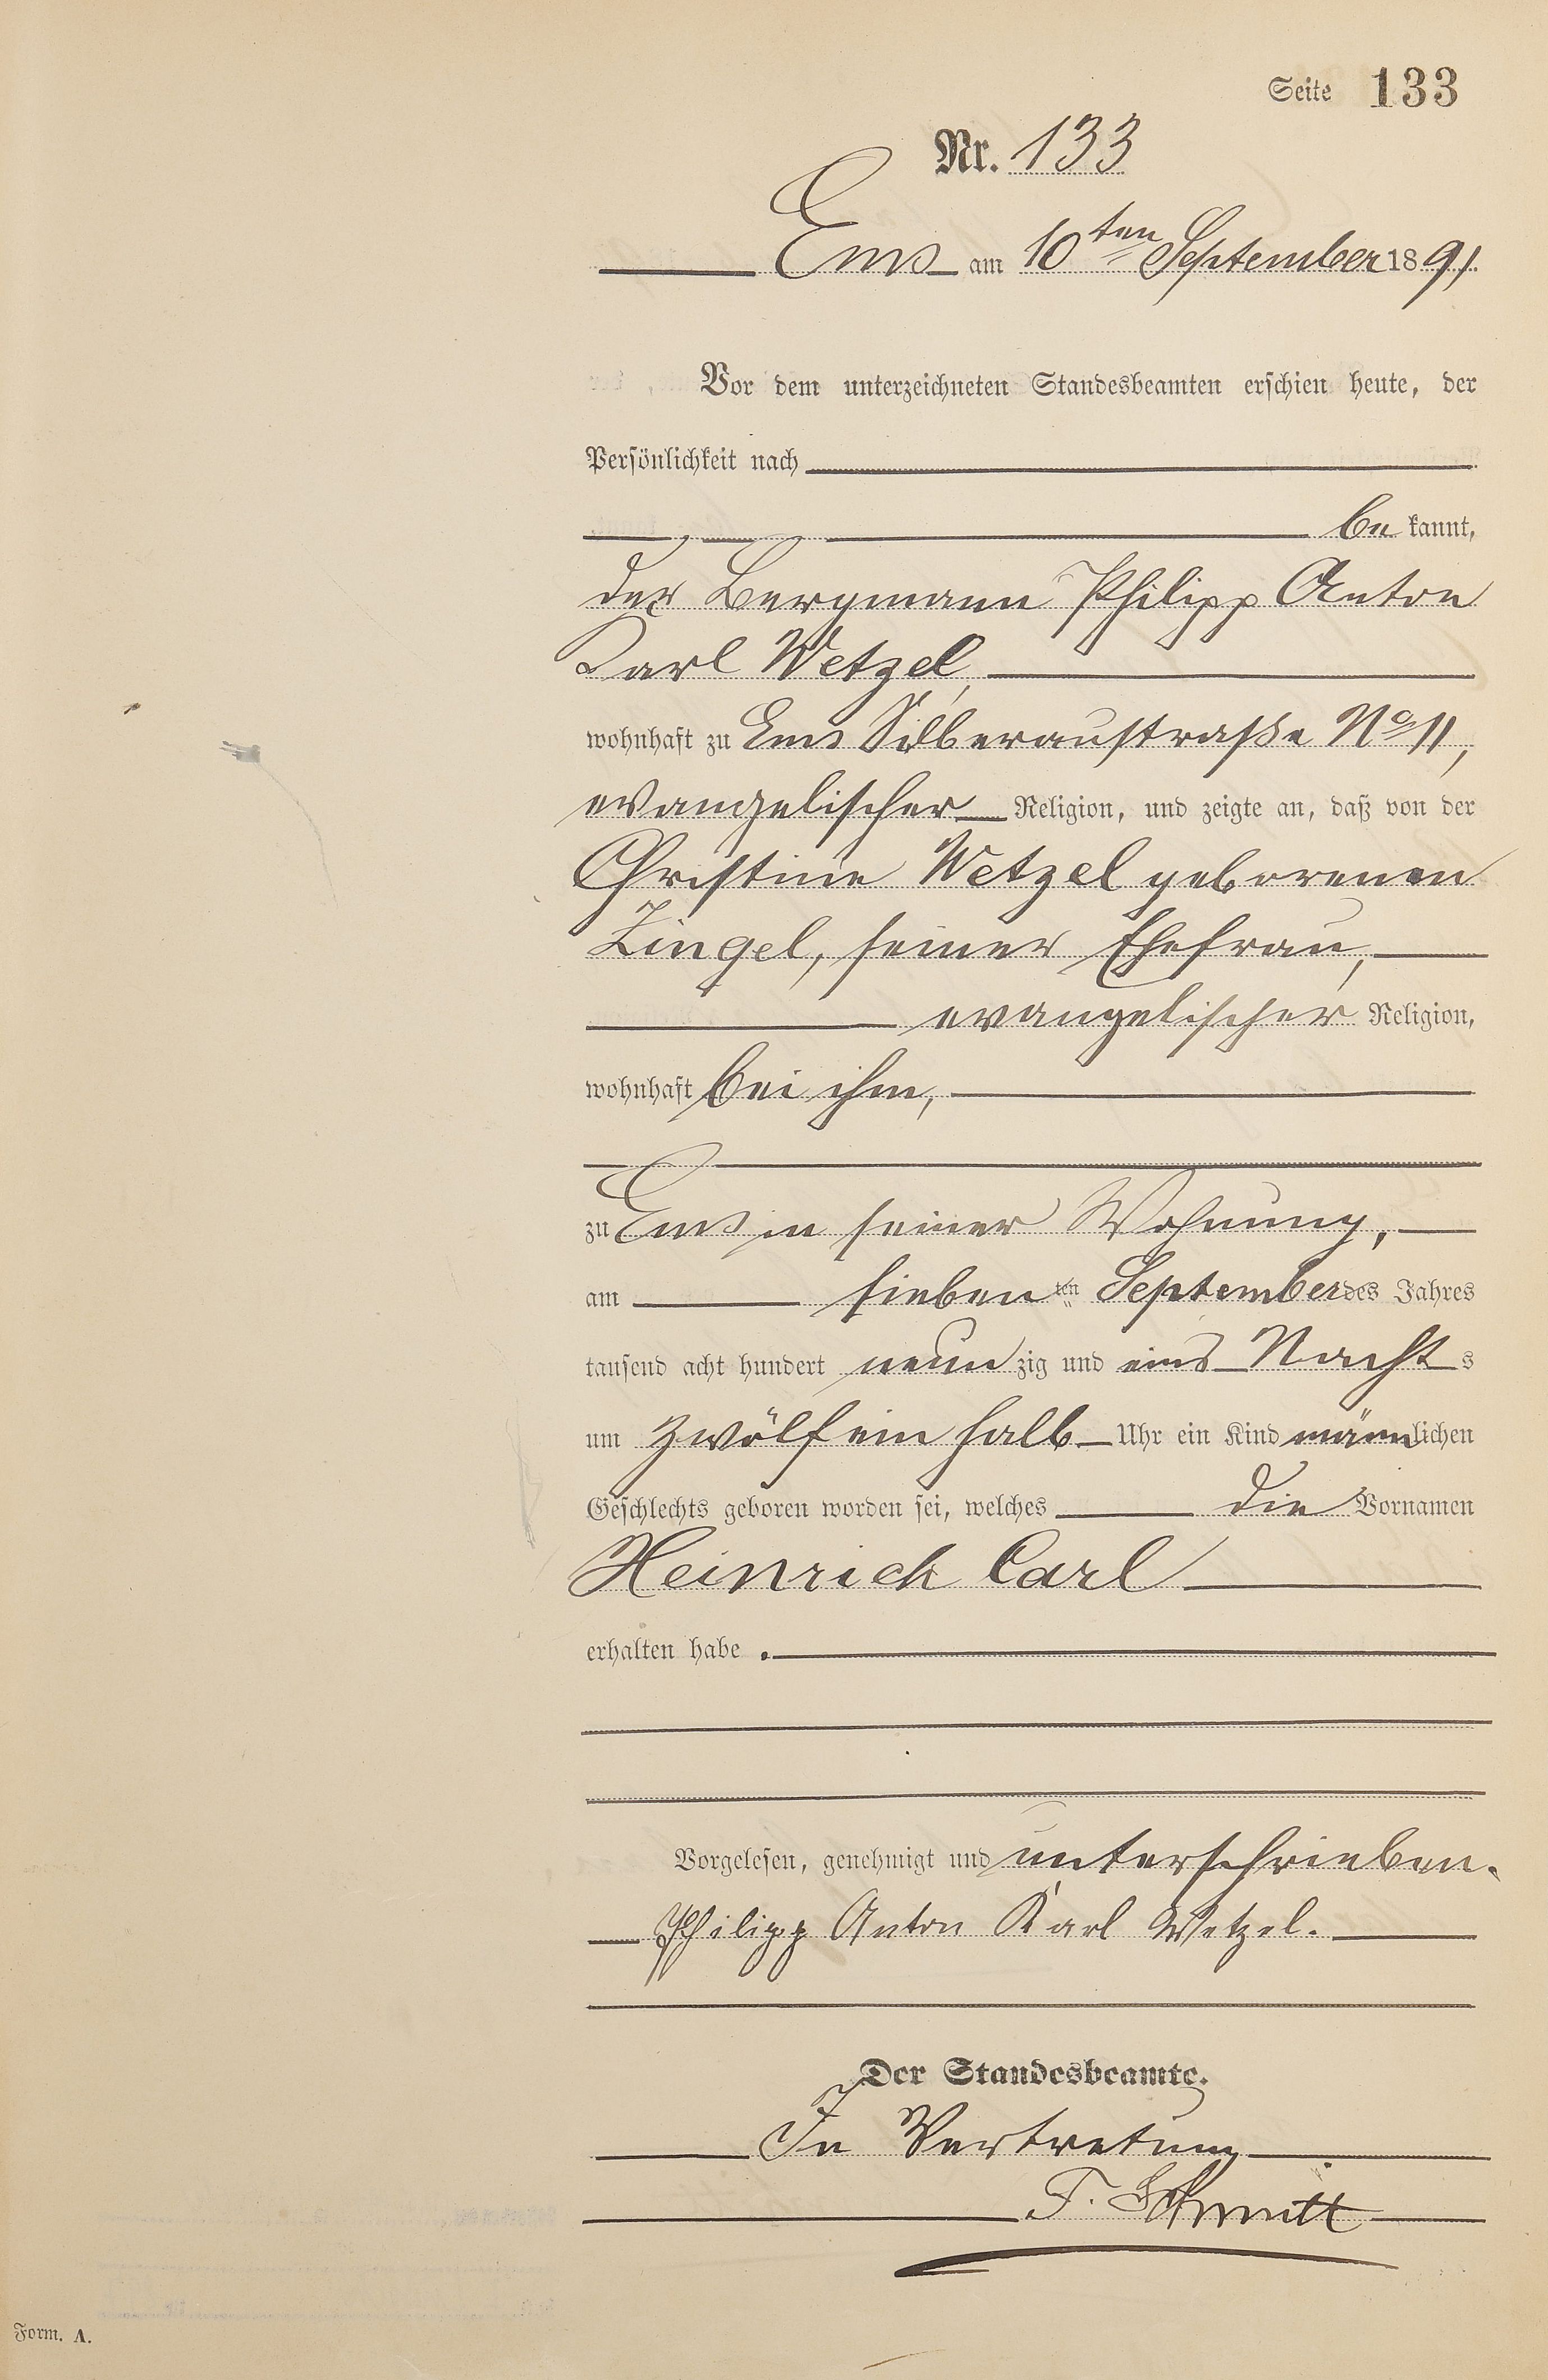 Seite 133
Nr. 133
Ems am 10ten September 1891.
Vor dem unterzeichneten Standesbeamten erschien heute, der
Persönlichkeit nach
be kannt,
der Bergmann Philipp Anton
Karl Wetzel,
wohnhaft zu Ems Silberaustraße No 11,
evangelischer Religion, und zeigte an, daß von der
Christine Wetzel geborenen
Zingel, seiner Ehefrau,
evangelischer Religion,
wohnhaft bei ihm,
zu Ems in seiner Wohnung,
am sieben ten September des Jahres
tausend acht hundert neun zig und eins Nacht s
um zwölf ein halb Uhr ein Kind männ lichen
Geschlechts geboren worden sei, welches die Vornamen
Heinrich Carl
erhalten habe.
Vorgelesen, genehmigt und unterschrieben.
Philipp Anton Karl Wetzel.
Der Standesbeamte.
In Vertretung
F. Schmitt
Form. A.